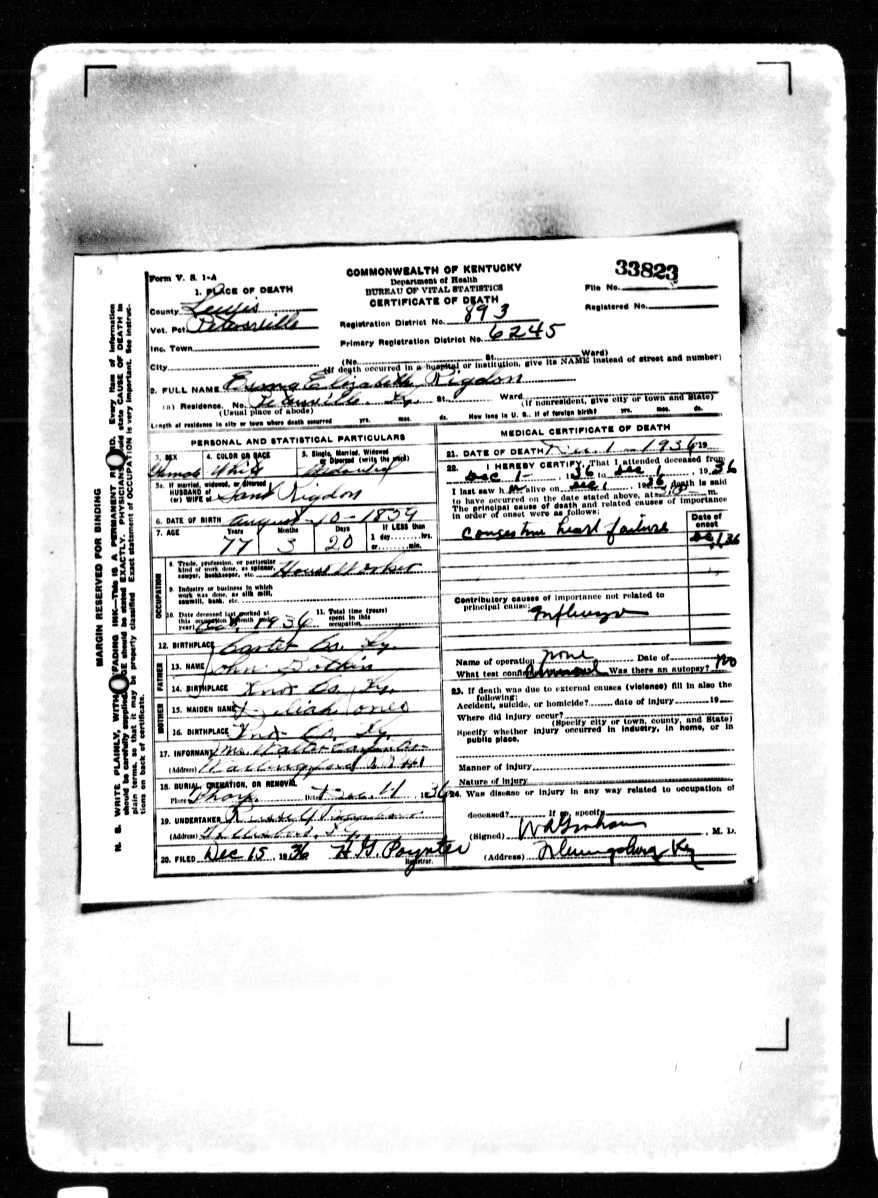 MARGIN RESERVED FOR BINDING
N. B. WRITE PLAINLY, WITH FADING INK—THIS IS A PERMANENT Every item of information
should be carefully supplied. should be stated EXACTLY. PHYSICIANS state CAUSE OF DEATH in
plain terms, so that it may be properly classified. Exact statement of OCCUPATION is very important. See instruc-
tions on back of certificate.
Form V. S. 1-A
COMMONWEALTH OF KENTUCKY
Department of Health
BUREAU OF VITAL STATISTICS
CERTIFICATE OF DEATH
33823
File No.
Registered No.
1. PLACE OF DEATH
County Lewis
Vot. Pct. Petersville
Inc. Town
City
Registration District No. 893
Primary Registration District No. 6245
(No. St. Ward)
(If death occurred in a hospital or institution, give its NAME instead of street and number)
2. FULL NAME Elizabeth Rigdon
(a) Residence. No. Petersville Ky. St. Ward.
(Usual place of abode) (If nonresident, give city or town and State)
Length of residence in city or town where death occurred yrs. mos. ds. How long in U. S., if of foreign birth? yrs. mos. ds.
PERSONAL AND STATISTICAL PARTICULARS
3. SEX 4. COLOR OR RACE 5. Single, Married, Widowed or Divorced (write the word)
Female White
5a. If married, widowed, or divorced
HUSBAND of
(or) WIFE of Rigdon
6. DATE OF BIRTH August 10-1859
7. AGE Years Months Days If LESS than
77 3 20 1 day hrs.
or min.
OCCUPATION
8. Trade, profession, or particular
kind of work done, as spinner,
sawyer, bookkeeper, etc. House Worker
9. Industry or business in which
work was done, as silk mill,
sawmill, bank, etc.
10. Date deceased last worked at
this occupation (month and
year) 1936
11. Total time (years)
spent in this
occupation
12. BIRTHPLACE Carter Co. Ky.
FATHER
13. NAME John
14. BIRTHPLACE Co. Ky.
MOTHER
15. MAIDEN NAME Jones
16. BIRTHPLACE Co. Ky.
17. INFORMANT Mrs Walter
(Address) Wallingford
18. BURIAL, CREMATION, OR REMOVAL
Place Tharp Date Dec. 11 1936
19. UNDERTAKER
(Address) Ky.
20. FILED Dec 15, 1936 H. G. Poynter
Registrar.
MEDICAL CERTIFICATE OF DEATH
21. DATE OF DEATH Dec. 1 - 1936 19
22. I HEREBY CERTIFY, That I attended deceased from
Dec 1 - , 1936 to Dec 1 , 1936
I last saw h alive on Dec 1 , 1936 death is said
to have occurred on the date stated above, at m.
The principal cause of death and related causes of importance
in order of onset were as follows:
Date of
onset
Congestive heart failure Dec 1, 36
Contributory causes of importance not related to
principal cause:
Influenza
Name of operation none Date of
What test confirmed Was there an autopsy? No
23. If death was due to external causes (violence) fill in also the
following:
Accident, suicide, or homicide? date of injury 19
Where did injury occur?
(Specify city or town, county, and State)
Specify whether injury occurred in industry, in home, or in
public place.
Manner of injury
Nature of injury
24. Was disease or injury in any way related to occupation of
deceased? If so, specify
(Signed) W A Graham , M. D.
(Address) Flemingsburg Ky